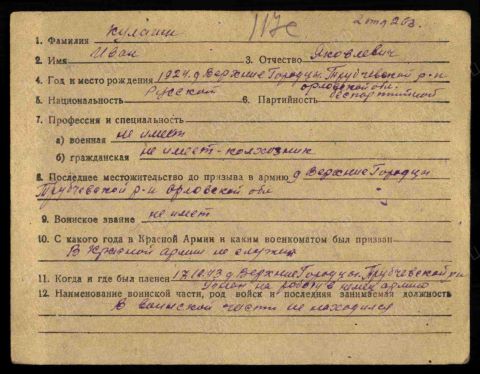 117с
2 отд 20г.
1. Фамилия Кулаши
2. Имя Иван 3. Отчество Яковлевич
4. Год и место рождения 1924 д Верхние Городцы Трубчевской р-н
орловской обл.
5. Национальность Русской 6. Партийность беспартийной
7. Профессия и специальность
а) военная не имеет
б) гражданская не имеет-колхозник
8. Последнее местожительство до призыва в армию д Верхние Городцы
Трубчевской р-н Орловской обл
9. Воинское звание не имет
10. С какого года в Красной Армии и каким военкоматом был призван
В Красной армии не служил
11. Когда и где был пленен 17.10.43 д Верхние Городцы Трубчевской р-н
угнан на работы в немец армию
12. Наименование воинской части, род войск и последняя занимаемая должность
В воинской части не находился